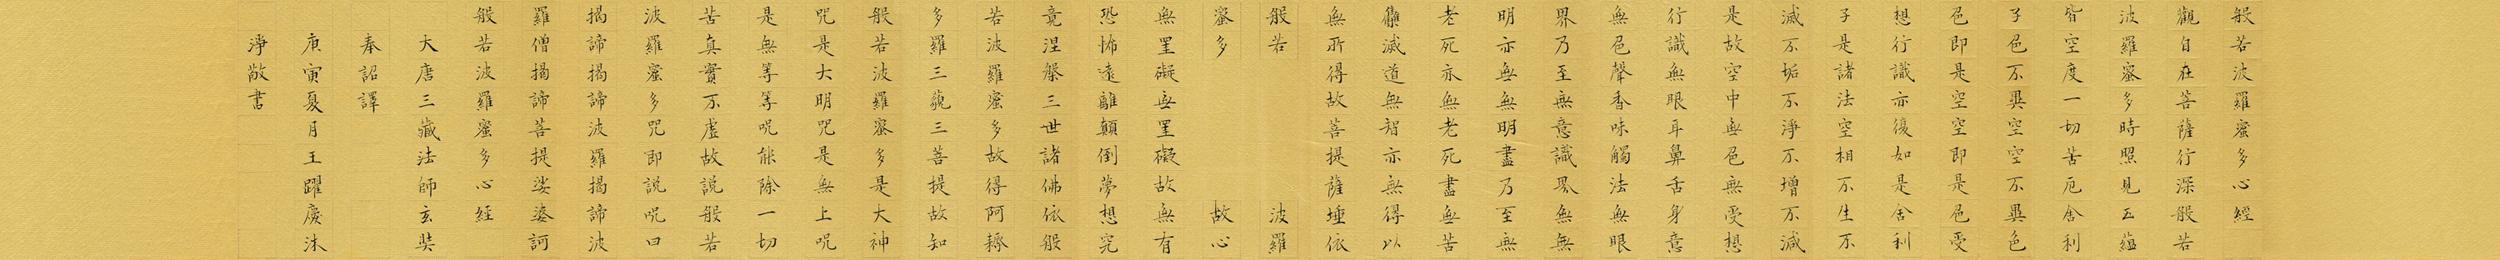 般若波羅蜜多心經
觀自在菩薩行深般若
波羅蜜多時照見五蘊
皆空度一切苦厄舍利
子色不異空空不異色
色即是空空即是色受
想行識亦復如是舍利
子是諸法空相不生不
滅不垢不淨不增不減
是故空中無色無受想
行識無眼耳鼻舌身意
無色聲香味觸法無眼
界乃至無意識界無無
明亦無無明盡乃至無
老死亦無老死盡無苦
集滅道無智亦無得以
無所得故菩提薩埵依
般若波羅
蜜多故心
無罣礙無罣礙故無有
恐怖遠離顛倒夢想究
竟涅槃三世諸佛依般
若波羅蜜多故得阿耨
多羅三藐三菩提故知
般若波羅蜜多是大神
咒是大明咒是無上呪
是無等等呪能除一切
苦真實不虛故說般若
波羅蜜多咒即說呪曰
揭諦揭諦波羅揭諦波
羅僧揭諦菩提娑婆訶
般若波羅蜜多心經
大唐三藏法師玄奘
奉詔譯
庚寅夏月王躍慶沐
淨敬書